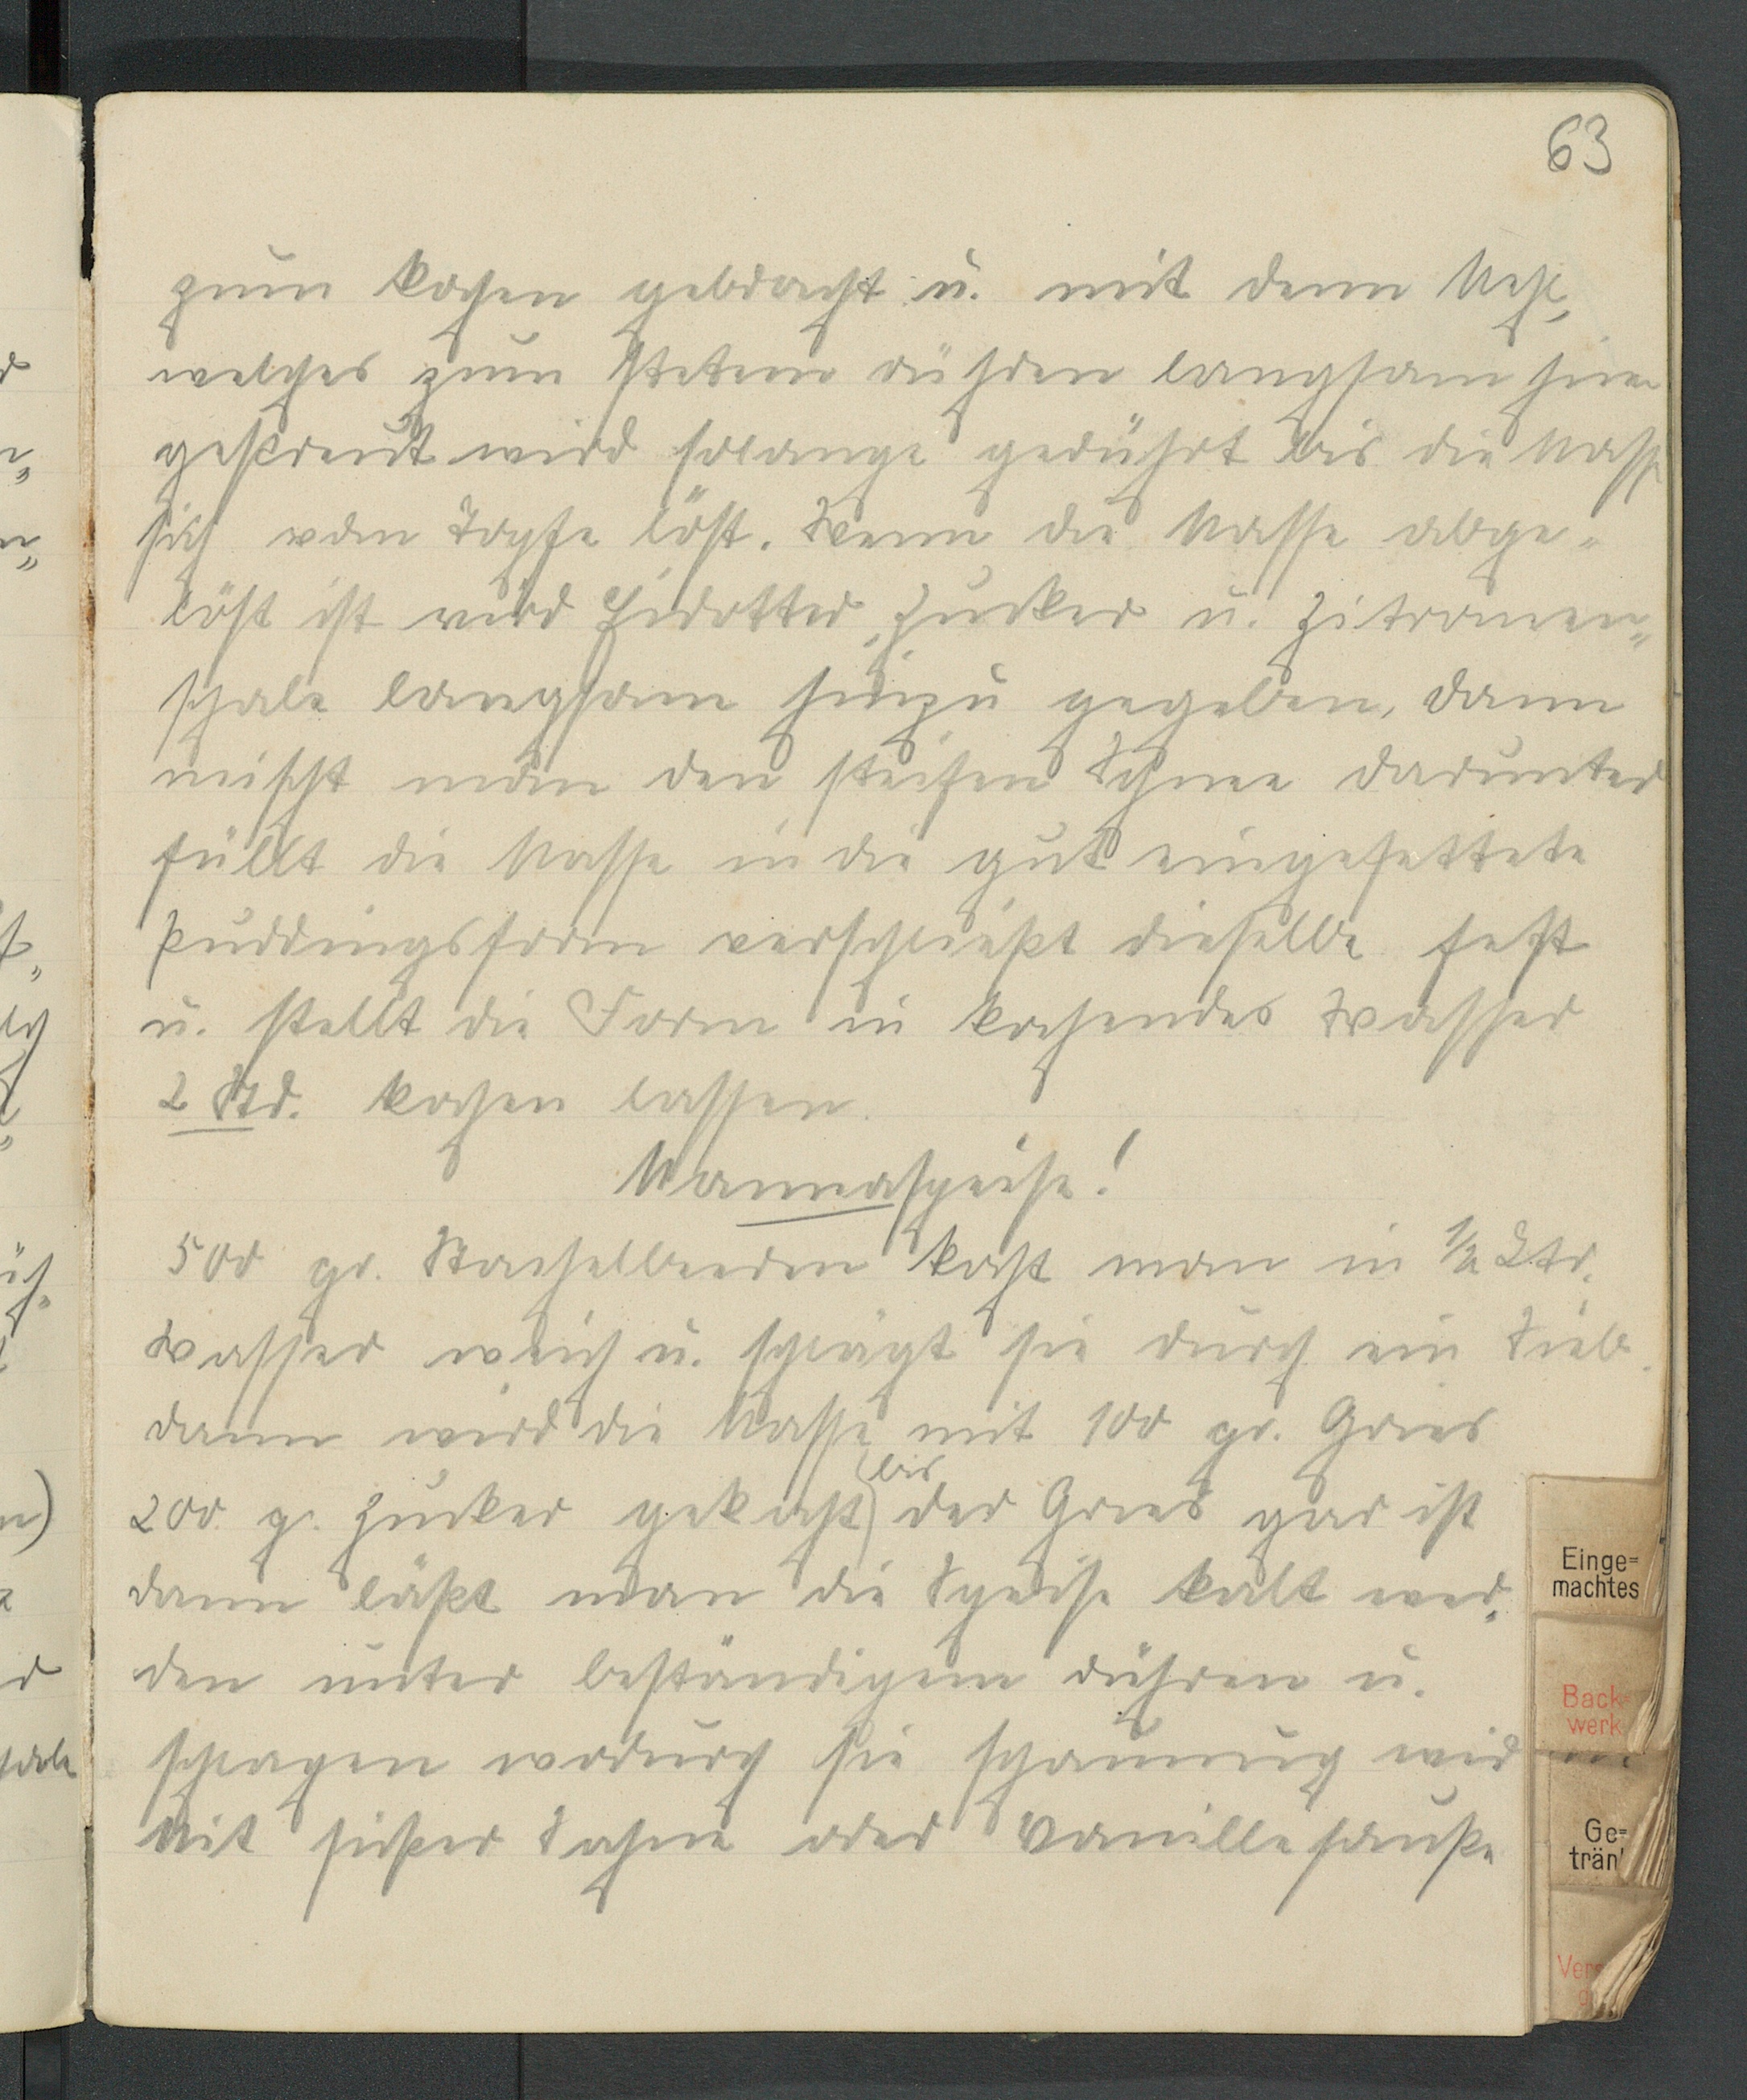 63
zum kochen gebracht u. mit dem Mehl,
welches zum stetem rühren langsam hin
gestreut wird solange gerührt bis die Masse
sich vom Topfe löst. Wenn die Masse abge-
löst ist wird Eidotter, Zucker u. Zitronen-
schale langsam hinzu gegeben, dann
mischt man den steifen Schnee darunter
füllt die Masse in die gut eingefettete
Puddingsform verschließt dieselbe fest
u. stellt die Form in kochendes Wasser
2 Std. kochen lassen.
Mannaspeise!
500 gr. Stachelbeeren kocht man in 1/2 Ltr.
Wasser weich u. schlägt sie durch ein Sieb.
dann wird die Masse mit 100 gr. Gries
200 gr. Zucker gekocht (bis) der Gries gar ist
dann läßt man die Speise kalt wer-
den unter beständigem rühren u.
schlagen wodurch sie schaumig wird
Mit süßer Sahne oder Vanillesauße
Einge=
machtes
Back=
werk
Ge=
trän
Ver